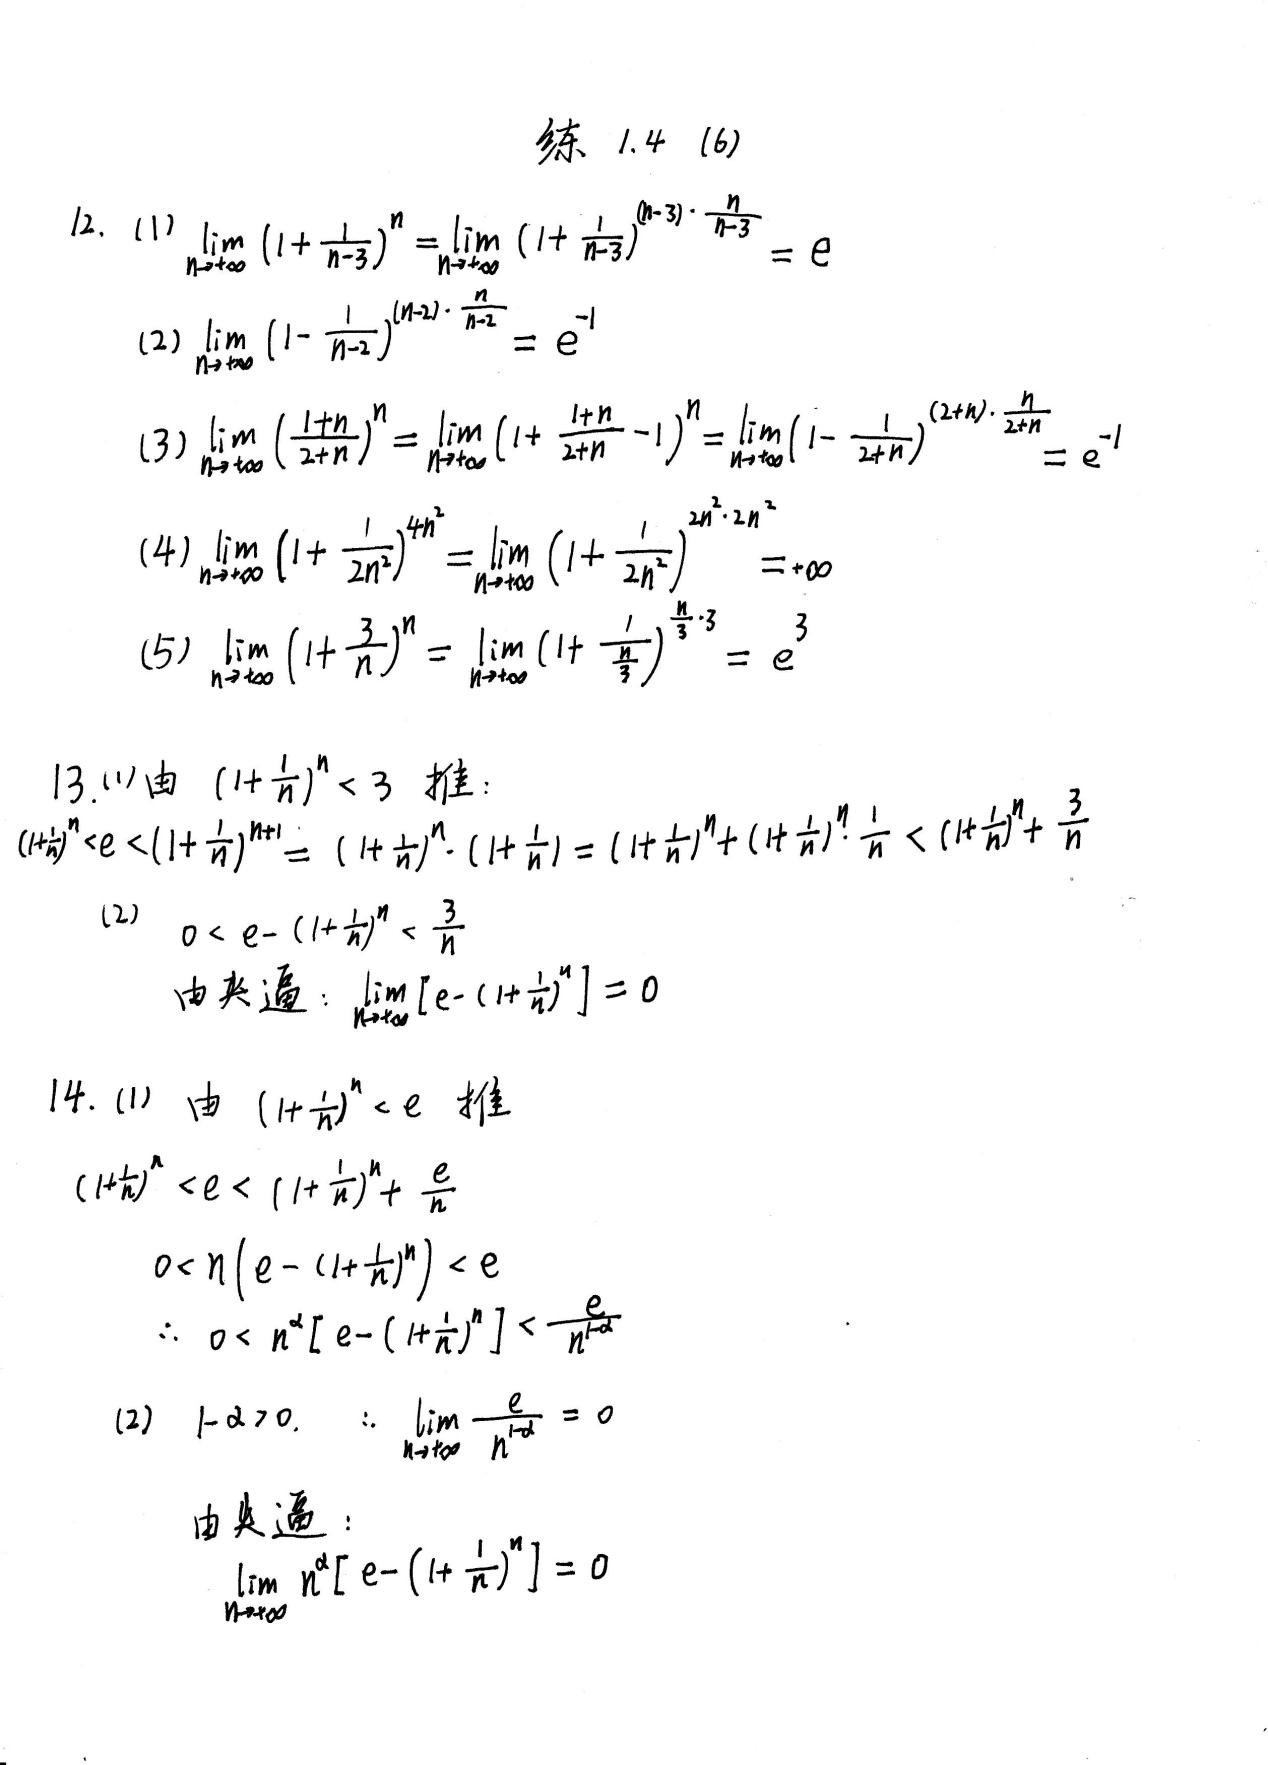 练 1.4 (6)
12. (1) lim_{n→+∞} (1+1/(n-3))^n = lim_{n→+∞} (1+1/(n-3))^{(n-3)·n/(n-3)} = e
(2) lim_{n→+∞} (1-1/(n-2))^{(n-2)·n/(n-2)} = e^{-1}
(3) lim_{n→+∞} ((1+n)/(2+n))^n = lim_{n→+∞} (1+(1+n)/(2+n)-1)^n = lim_{n→+∞} (1-1/(2+n))^{(2+n)·n/(2+n)} = e^{-1}
(4) lim_{n→+∞} (1+1/(2n²))^{4n²} = lim_{n→+∞} (1+1/(2n²))^{2n²·2n²} = +∞
(5) lim_{n→+∞} (1+3/n)^n = lim_{n→+∞} (1+1/(n/3))^{n/3·3} = e^3
13.(1) 由 (1+1/n)^n < 3 推:
(1+1/n)^n < e < (1+1/n)^{n+1} = (1+1/n)^n·(1+1/n) = (1+1/n)^n + (1+1/n)^n·1/n < (1+1/n)^n + 3/n
(2) 0 < e-(1+1/n)^n < 3/n
由夹逼: lim_{n→+∞} [e-(1+1/n)^n] = 0
14. (1) 由 (1+1/n)^n < e 推
(1+1/n)^n < e < (1+1/n)^n + e/n
0 < n(e-(1+1/n)^n) < e
∴ 0 < n^α[e-(1+1/n)^n] < e/n^{1-α}
(2) 1-α>0. ∴ lim_{n→+∞} e/n^{1-α} = 0
由夹逼:
lim_{n→+∞} n^α[e-(1+1/n)^n] = 0